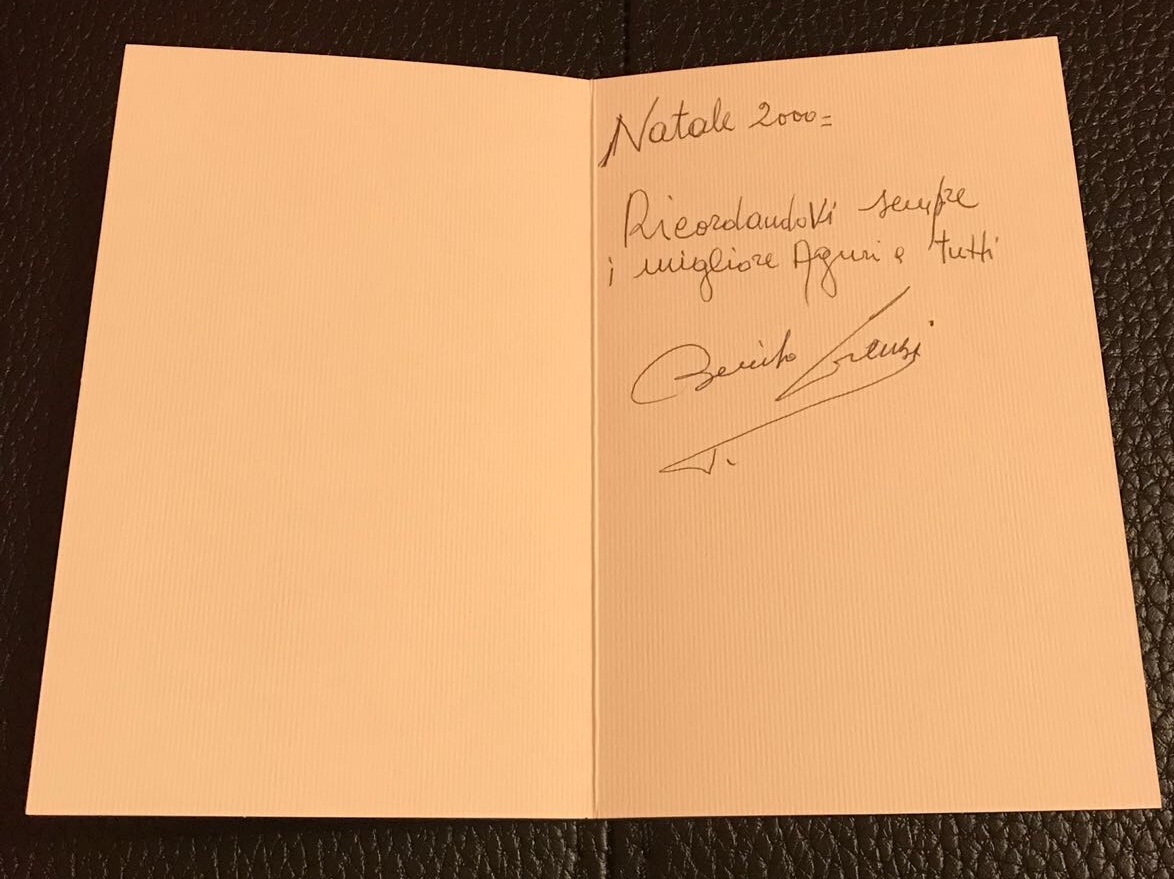 Natale 2000=
Ricordandovi sempre
i migliore Aguri a tutti
Benito Lorenzi